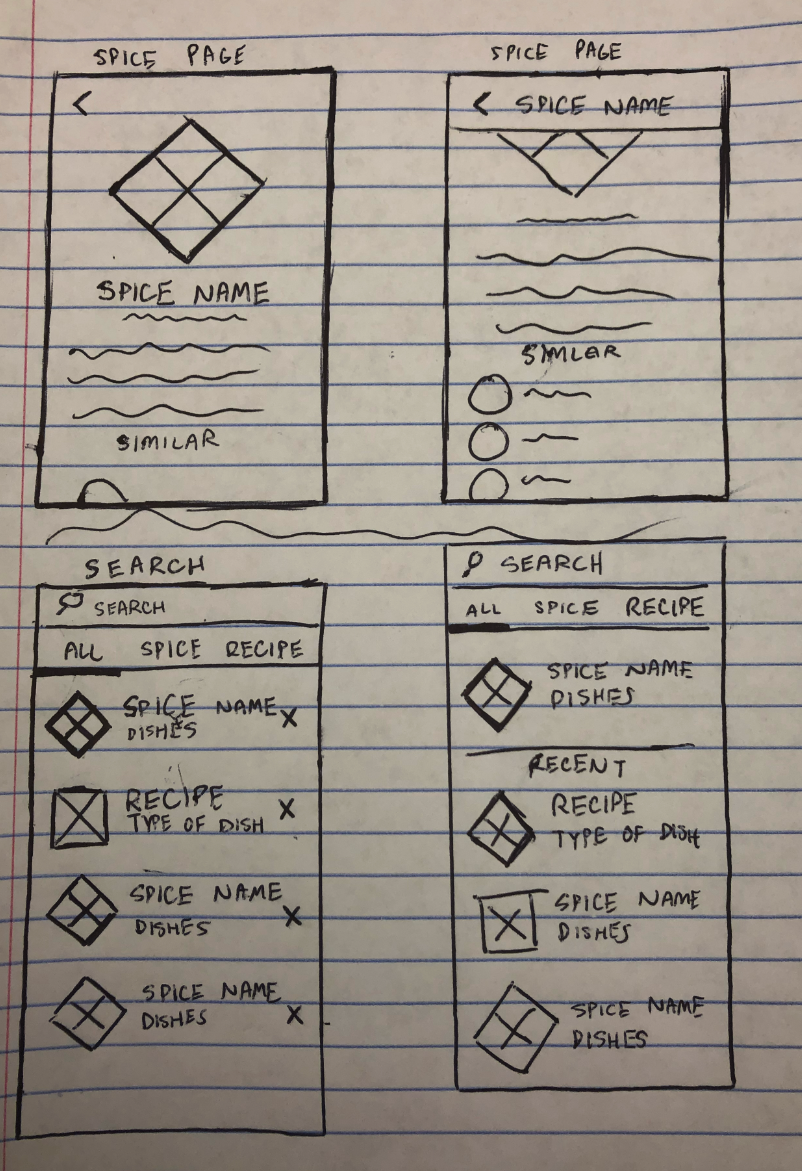 SPICE PAGE
<
SPICE NAME
SIMILAR
SPICE PAGE
< SPICE NAME
SIMLAR
SEARCH
SEARCH
ALL SPICE RECIPE
SPICE NAME X
DISHES
RECIPE X
TYPE OF DISH
SPICE NAME
DISHES X
SPICE NAME
DISHES X
SEARCH
ALL SPICE RECIPE
SPICE NAME
DISHES
RECENT
RECIPE
TYPE OF DISH
SPICE NAME
DISHES
SPICE NAME
DISHES